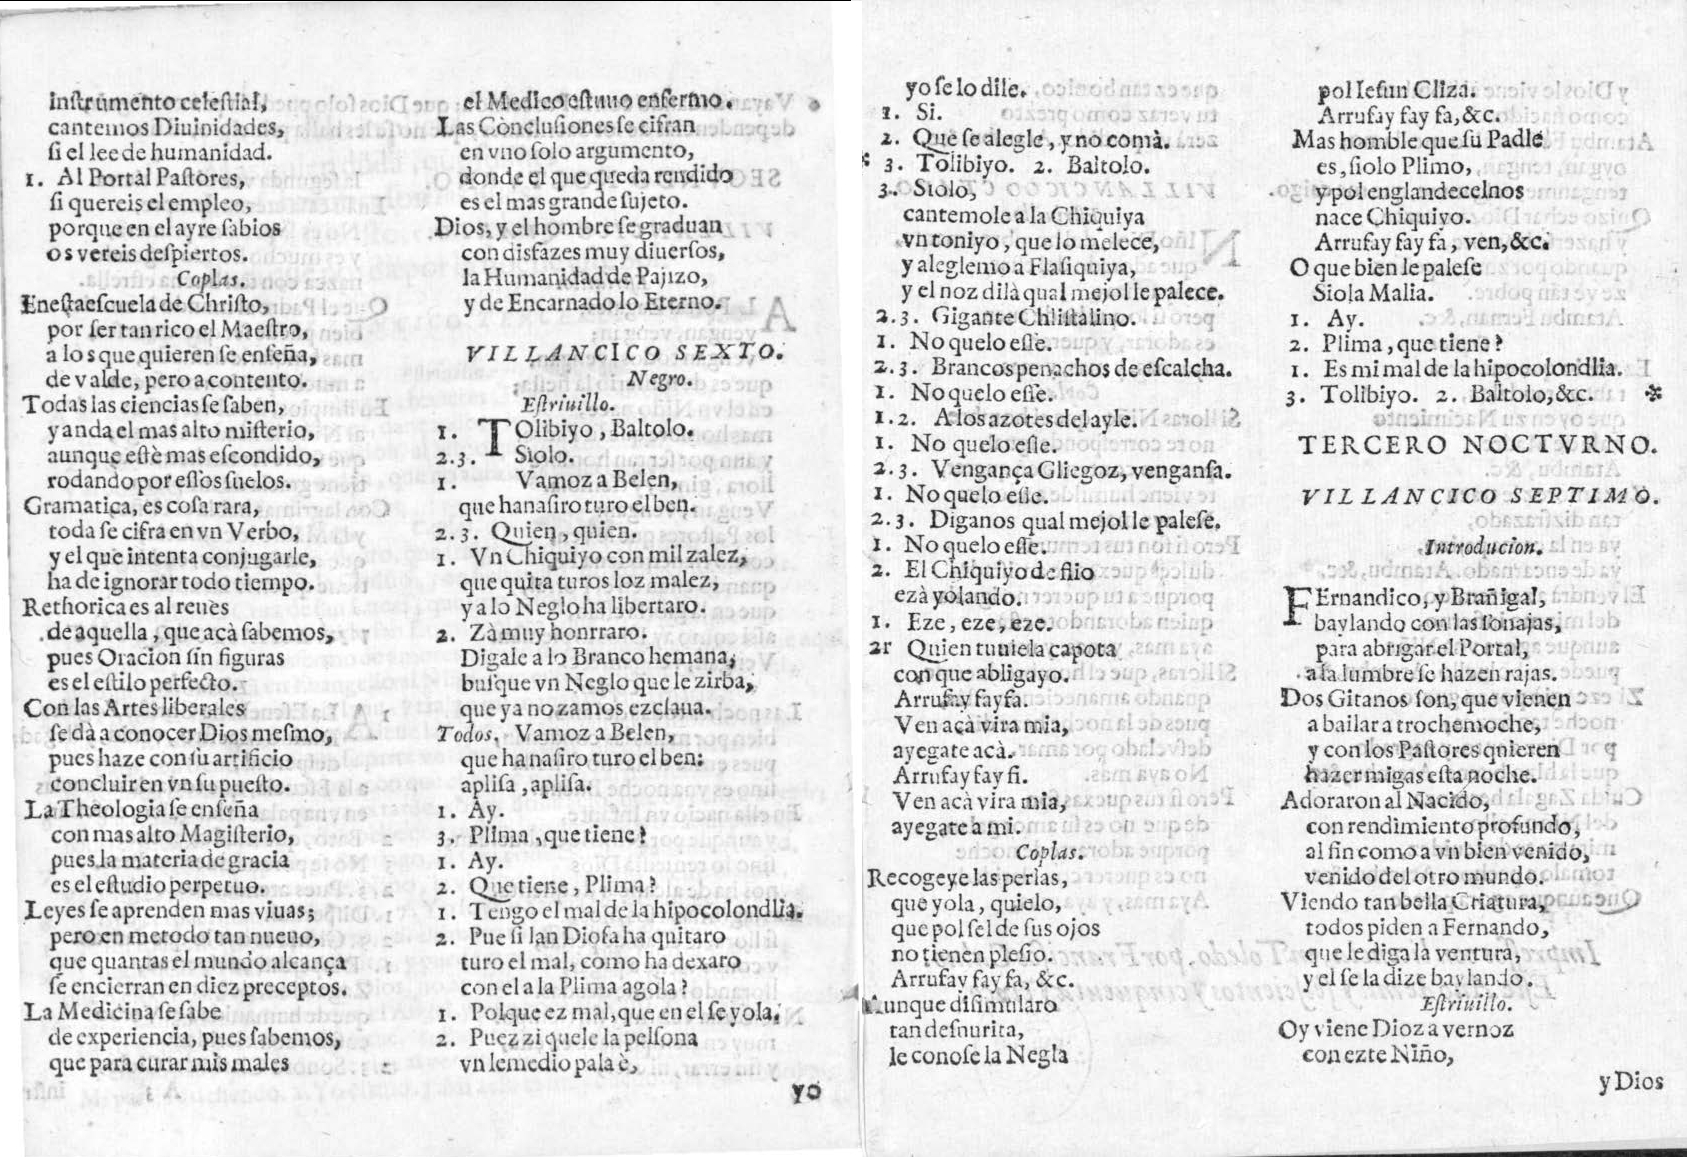 instrumento celestial,
cantemos Diuinidades,
si el lee de humanidad.
1. Al Portal Pastores,
si quereis el empleo,
porque en el ayre sabios
os vereis despiertos.
Coplas.
En esta escuela de Christo,
por ser tan rico el Maestro,
a los que quieren se enseña,
de valde, pero a contento.
Todas las ciencias se saben,
y anda el mas alto misterio,
aunque estè mas escondido,
rodando por essos suelos.
Gramatica, es cosa rara,
toda se cifra en vn Verbo,
y el que intenta conjugarle,
ha de ignorar todo tiempo.
Rethorica es al reues
de aquella, que acà sabemos,
pues Oracion sin figuras
es el estilo perfecto.
Con las Artes liberales
se dà a conocer Dios mesmo,
pues haze con su artificio
concluir en vn supuesto.
La Theologia se enseña
con mas alto Magisterio,
pues la materia de gracia
es el estudio perpetuo.
Leyes se aprenden mas viuas;
pero en metodo tan nueuo,
que quantas el mundo alcança
se encierran en diez preceptos.
La Medicina se sabe
de experiencia, pues sabemos,
que para curar mis males
el Medico estuuo enfermo.
Las Conclusiones se cifran
en vno solo argumento,
donde el que queda rendido
es el mas grande sujeto.
Dios, y el hombre se graduan
con disfazes muy diuersos,
la Humanidad de Pajizo,
y de Encarnado lo Eterno.
VILLANCICO SEXTO.
Negro.
Estriuillo.
1. TOlibiyo, Baltolo.
2.3. Siolo.
1. Vamoz a Belen,
que han asiro turo el ben.
2.3. Quien, quien.
1. Vn Chiquiyo con mil zalez,
que quita turos loz malez,
y a lo Neglo ha libertaro.
2. Zà muy honrraro.
Digale a lo Branco hemana,
busque vn Neglo que le zirba,
que ya no zamos ezclaua.
Todos. Vamoz a Belen,
que ha nasiro turo el ben:
aplisa, aplisa.
1. Ay.
3. Plima, que tiene?
1. Ay.
2. Que tiene, Plima?
1. Tengo el mal de la hipocolondlia.
2. Pue si lan Diosa ha quitaro
turo el mal, como ha dexaro
con el a la Plima agola?
1. Polque ez mal, que en el se yola.
2. Puez zi quele la pelsona
vn lemedio pala è,
yo
yo se lo dile.
1. Si.
2. Que se alegle, y no comà.
3. Tolibiyo. 2. Baltolo.
3. Siolo,
cantemole a la Chiquiya
vn toniyo, que lo melece,
y aleglemo a Flasiquiya,
y el noz dilà qual mejol le palece.
2.3. Gigante Chlistalino.
1. No quelo esse.
2.3. Brancos penachos de escalcha.
1. No quelo esse.
1.2. A los azotes del ayle.
1. No quelo esse.
2.3. Vengança Gliegoz, vengansa.
1. No quelo esse.
2.3. Diganos qual mejol le palese.
1. No quelo esse.
2. El Chiquiyo de flio
ezà yolando.
1. Eze, eze, eze.
2r Quien tuuiela capota
con que abligayo.
Arrufay fayfa.
Ven acà vira mia,
ayegate acà.
Arrufay fay fi.
Ven acà vira mia,
ayegate a mi.
Coplas.
Recogeye las perlas,
que yola, quielo,
que pol sel de sus ojos
no tienen plesio.
Arrufay fay fa, &c.
Aunque disimularo
tan desnurita,
le conose la Negla
pol Iesun Cliza.
Arrufay fay fa, &c.
Mas homble que su Padle
es, siolo Plimo,
y pol englandecelnos
nace Chiquiyo.
Arrufay fay fa, ven, &c.
O que bien le palese
Siola Malia.
1. Ay.
2. Plima, que tiene?
1. Es mi mal de la hipocolondlia.
3. Tolibiyo. 2. Baltolo, &c.
TERCERO NOCTVRNO.
VILLANCICO SEPTIMO.
Introducion.
FErnandico, y Brañigal,
baylando con las sonajas,
para abrigar el Portal,
a la lumbre se hazen rajas.
Dos Gitanos son, que vienen
a bailar a trochemoche,
y con los Pastores quieren
hazer migas esta noche.
Adoraron al Nacido,
con rendimiento profundo,
al fin como a vn bien venido,
venido del otro mundo.
Viendo tan bella Criatura,
todos piden a Fernando,
que le diga la ventura,
y el se la dize baylando.
Estriuillo.
Oy viene Dioz a vernoz
con ezte Niño,
y Dios